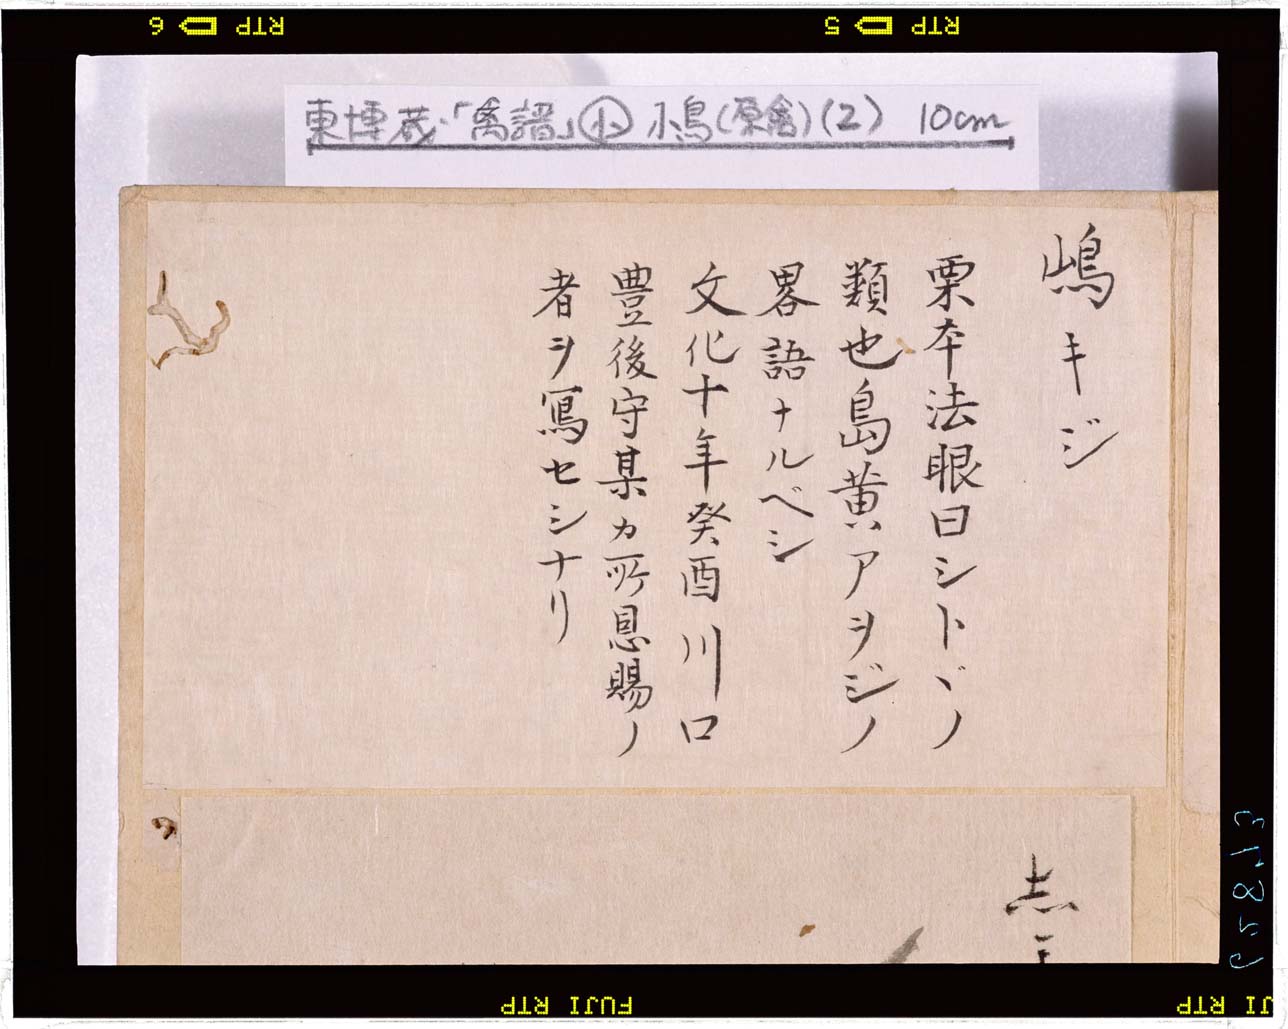 東博蔵・「禽譜」㊦小鳥(原禽)(2) 10cm
嶋キジ
栗本法眼曰シトヾノ
類也島黄アヲジノ
畧語ナルベシ
文化十年癸酉川口
豊後守某カ所恩賜ノ
者ヲ寫セシナリ
RTP 6
RTP 5
FUJI RTP
JI RTP